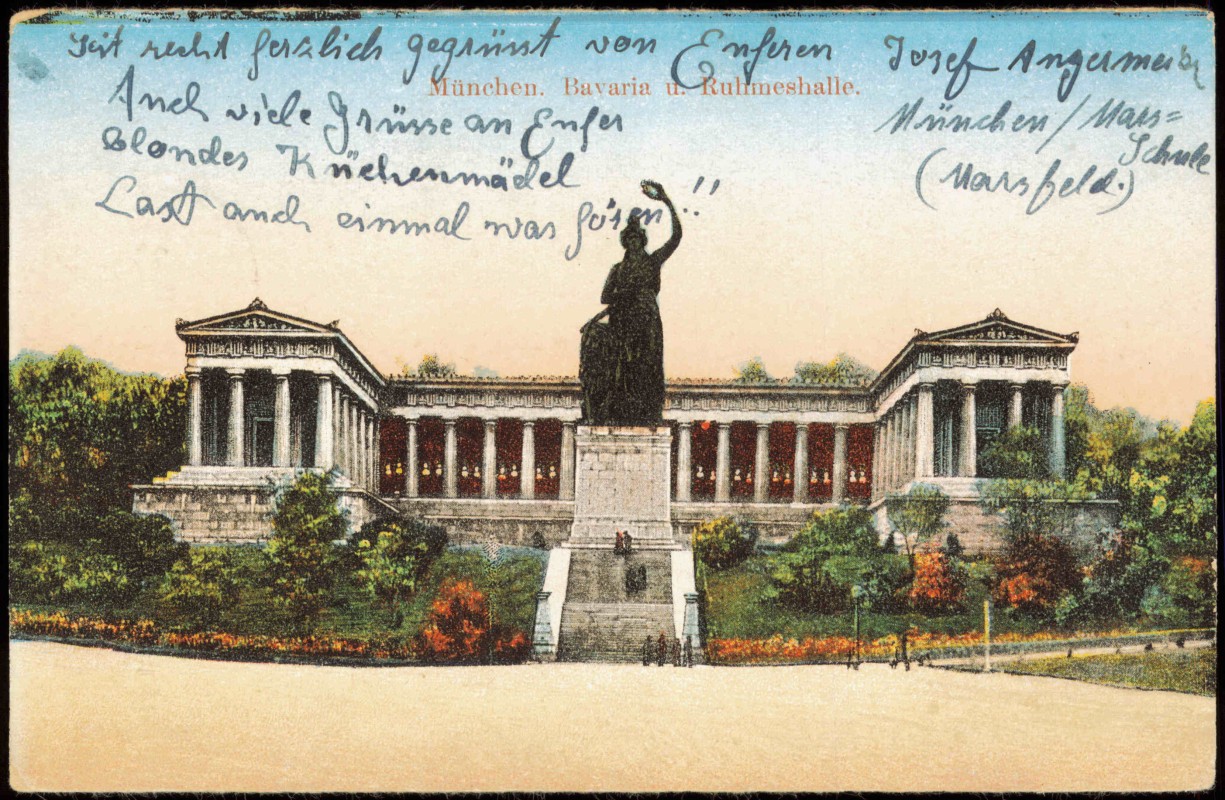 Seit recht herzlich gegrüsst von Enheren Josef Angermeier
München. Bavaria u. Ruhmeshalle.
Auch viele Grüsse an Enher
München / Mars=
Schule
blondes Küchenmädel
(Marsfeld.)
Last auch einmal was hören!!